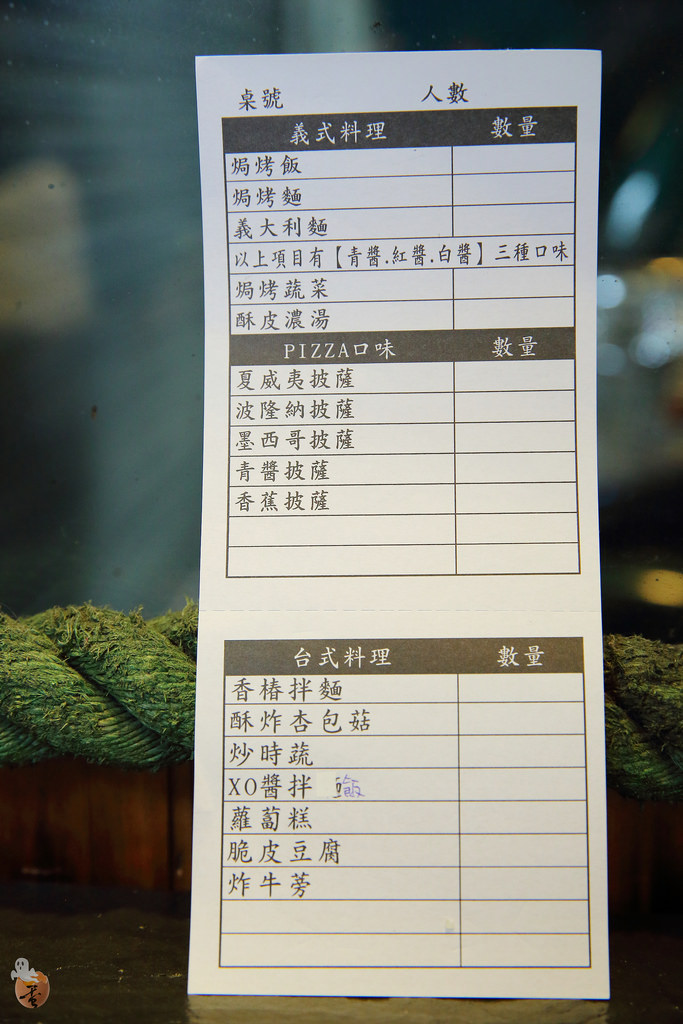 桌號 人數
義式料理 數量
焗烤飯
焗烤麵
義大利麵
以上項目有【青醬.紅醬.白醬】三種口味
焗烤蔬菜
酥皮濃湯
PIZZA口味 數量
夏威夷披薩
波隆納披薩
墨西哥披薩
青醬披薩
香蕉披薩
台式料理 數量
香椿拌麵
酥炸杏包菇
炒時蔬
XO醬拌 飯
蘿蔔糕
脆皮豆腐
炸牛蒡